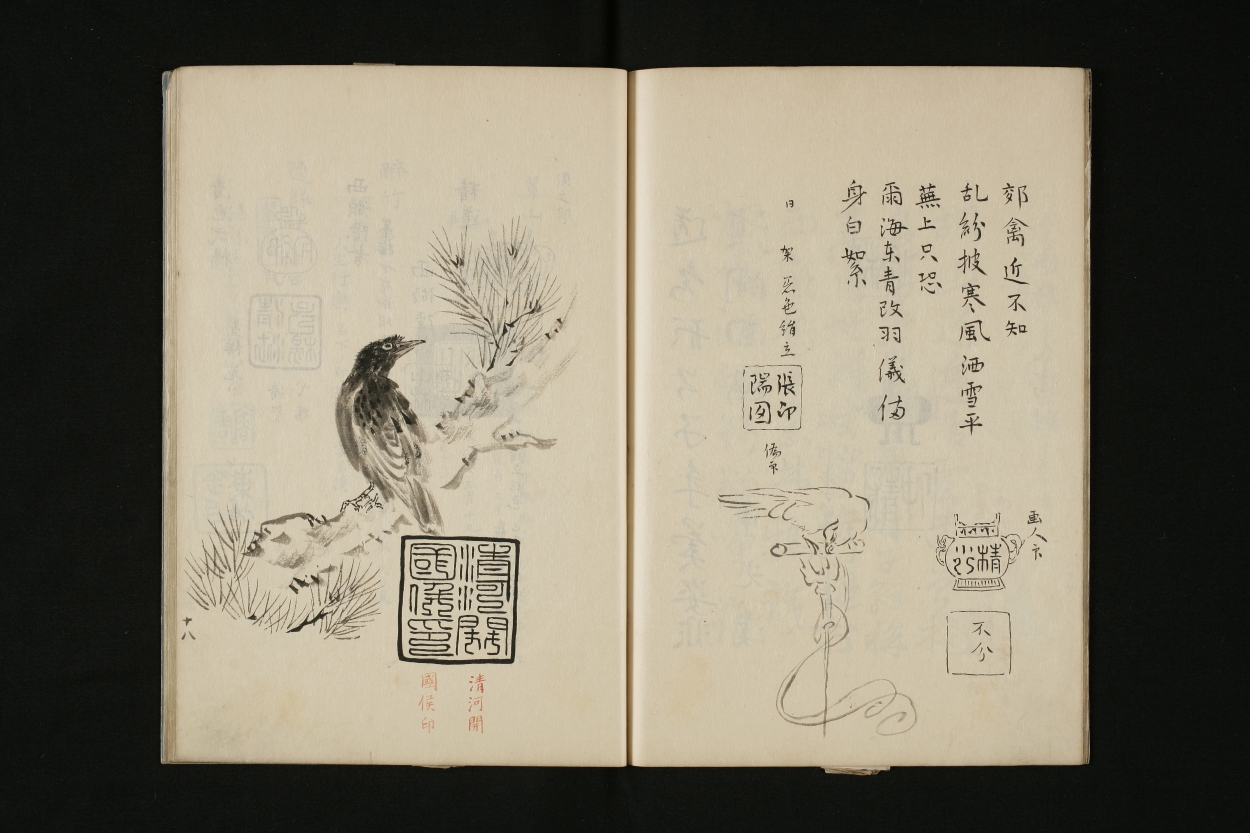 郊禽近不知
乱紛披寒風洒雪平
蕪上只恐
爾海东青改羽儀偽
身白絮
画人印
精
不分
日
架
色絹立
張印
瑞图
偽印
清河開
國侯印
清河開
國侯印
十八